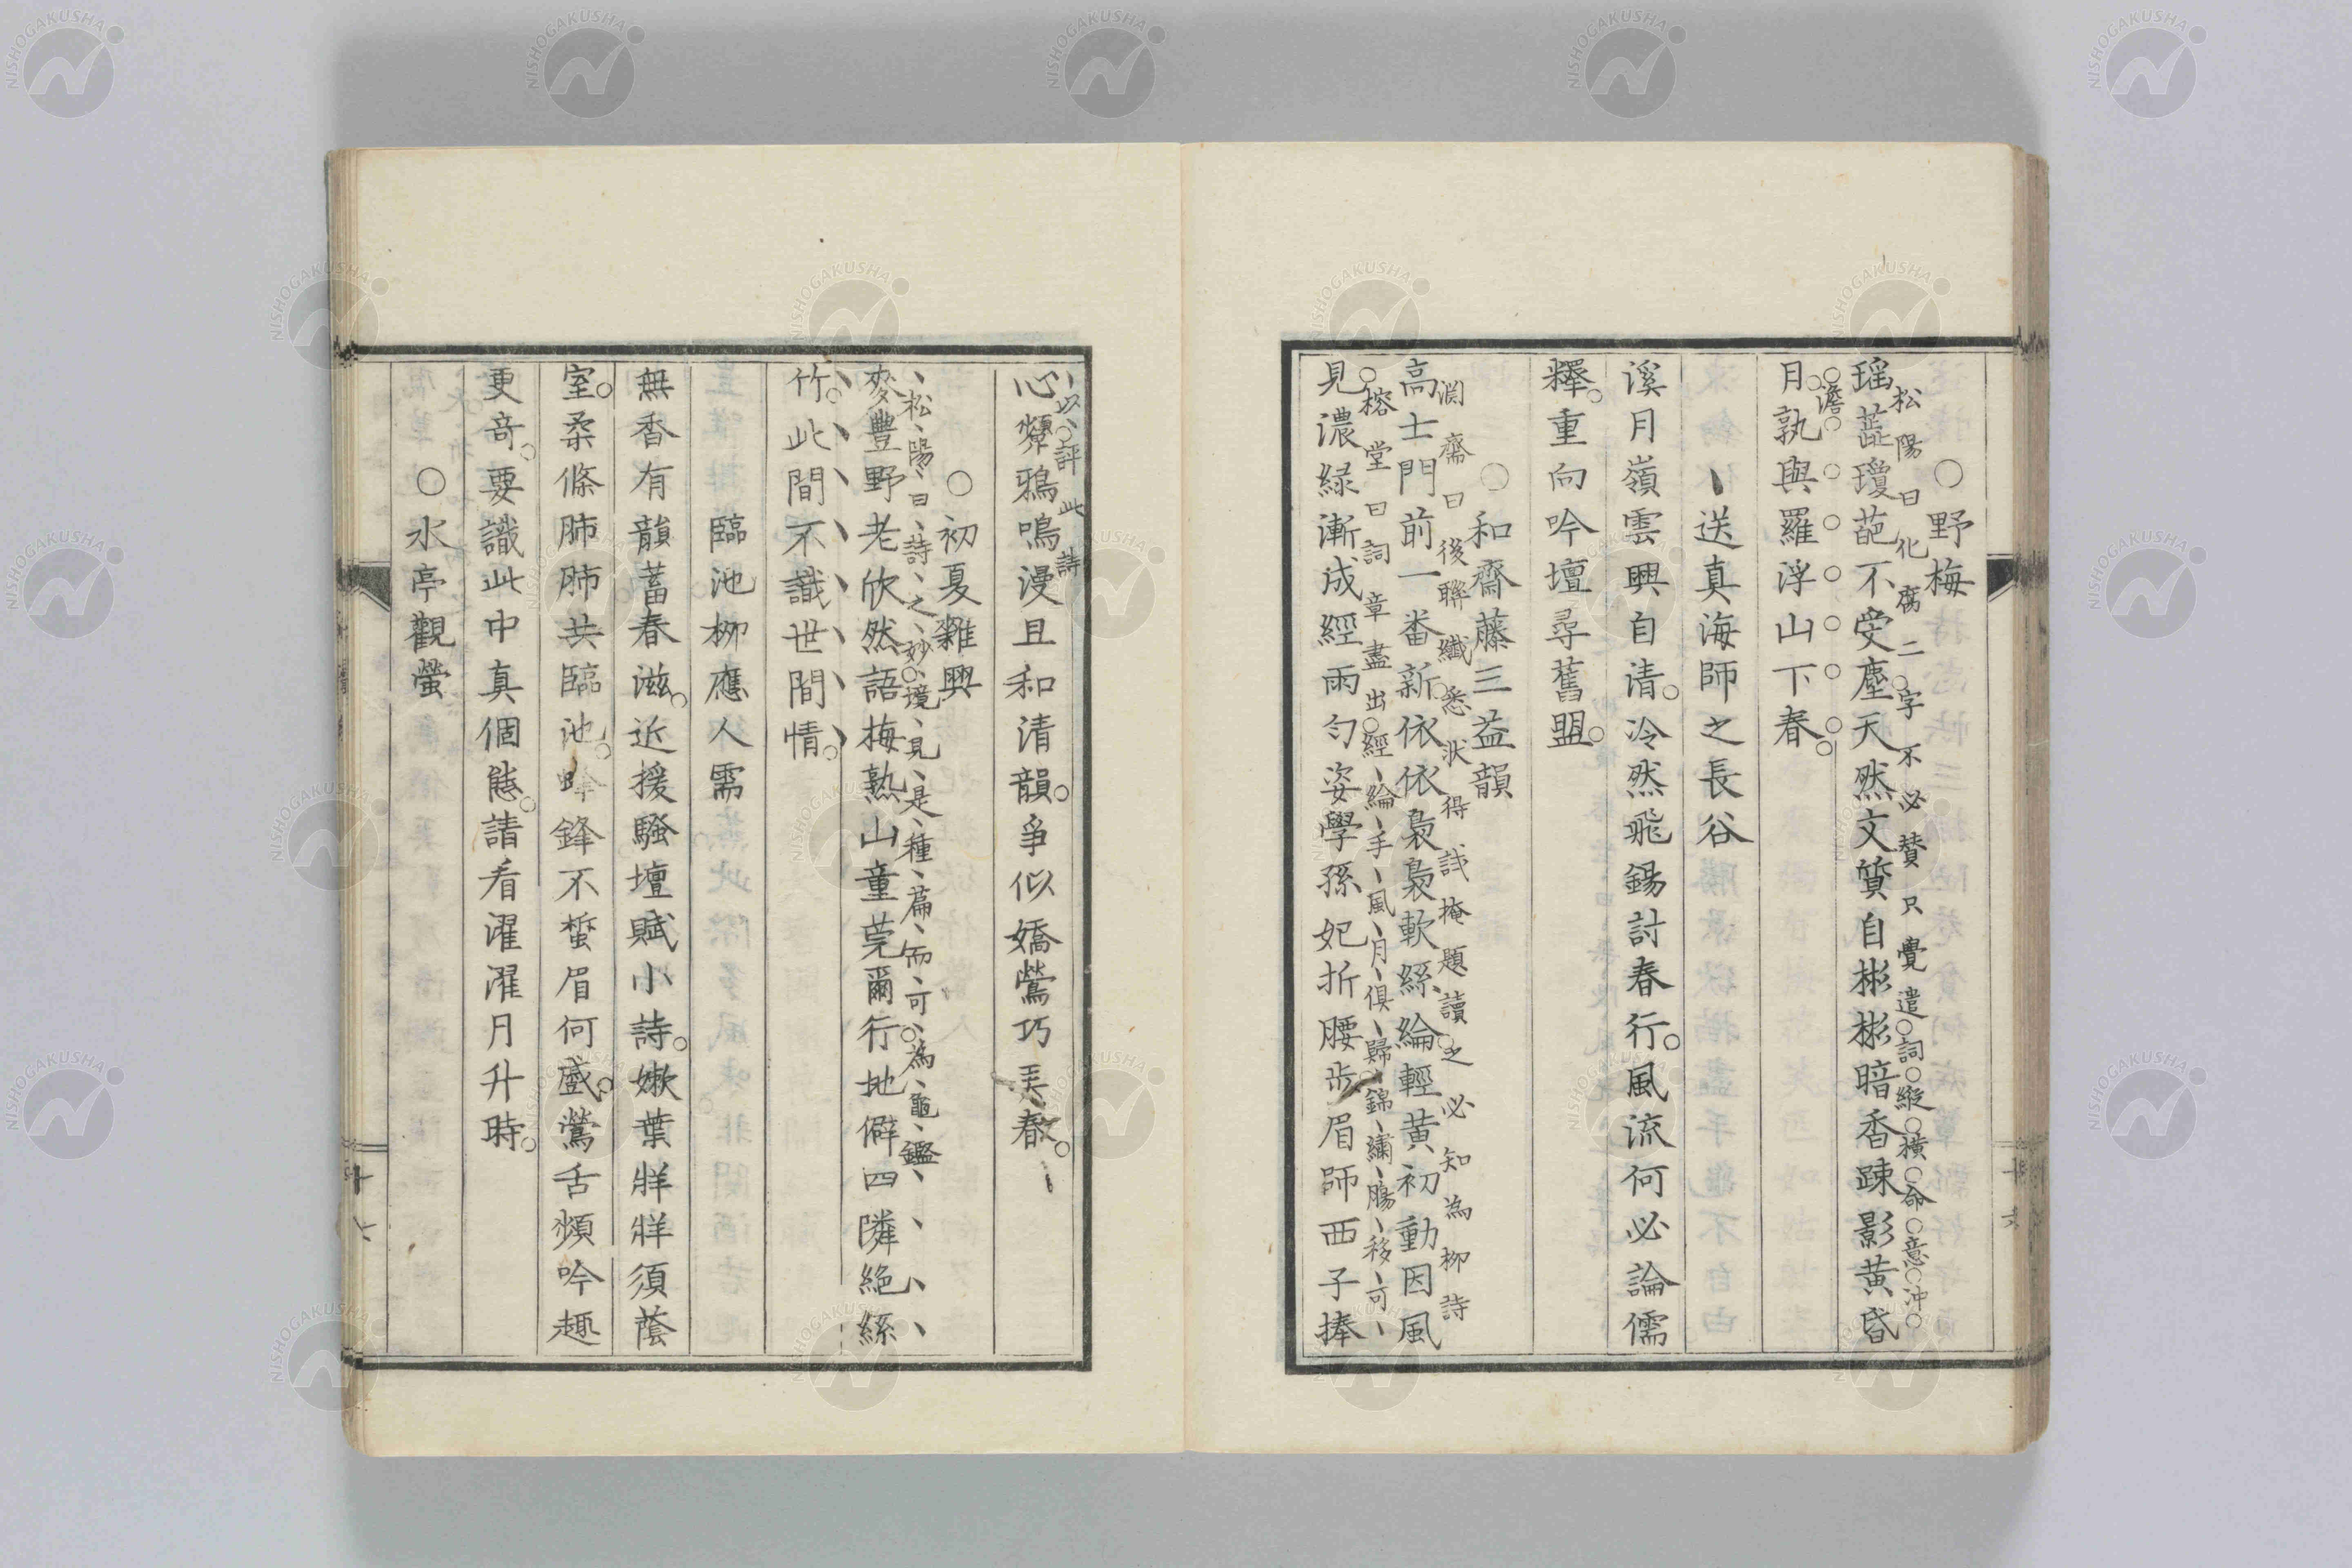 野梅
松陽曰化腐二字不必贊只覺遣詞縱橫命意沖
瑶蘂瓊葩不受塵天然文質自彬彬暗香踈影黄昏
澹
月孰與羅浮山下春
送真海師之長谷
溪月嶺雲興自清冷然飛錫討春行風流何必論儒
釋重向吟壇尋舊盟
和齋藤三益韻
淵齋曰後聯纖悉狀得試掩題讀之必知為柳詩
高士門前一番新依依裊裊軟絲綸輕黄初動因風
榕堂曰詞章盡出經綸手風月俱歸錦繡膓移可
見濃緑漸成經雨勻姿學孫妃折腰步眉師西子捧
以評此詩
心顰鴉鳴漫且和清韻爭似嬌鶯巧弄春
初夏雜興
松陽曰詩之妙境見是種篇而可為龜鑑
麥豐野老欣然語梅熟山童莞爾行地僻四隣絶絲
竹此間不識世間情
臨池柳應人需
無香有韻蓄春滋近援騷壇賦小詩嫩葉牂牂須蔭
室柔條肺肺共臨池蜂鋒不蜇眉何蹙鶯舌頻吟趣
更竒要識此中真個態請看濯濯月升時
水亭觀螢